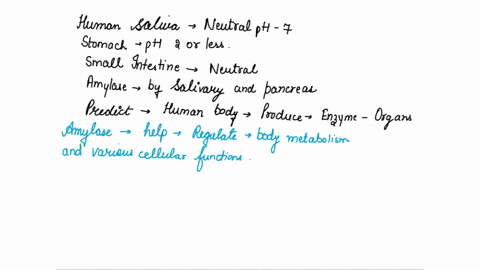 Human Saliva → Neutral pH - 7
Stomach → pH 2 or less.
Small Intestine → Neutral
Amylase → by Salivary and pancreas
Predict → Human body → Produce → Enzyme - Organs
Amylase → help → Regulate → body metabolism
and various cellular functions.